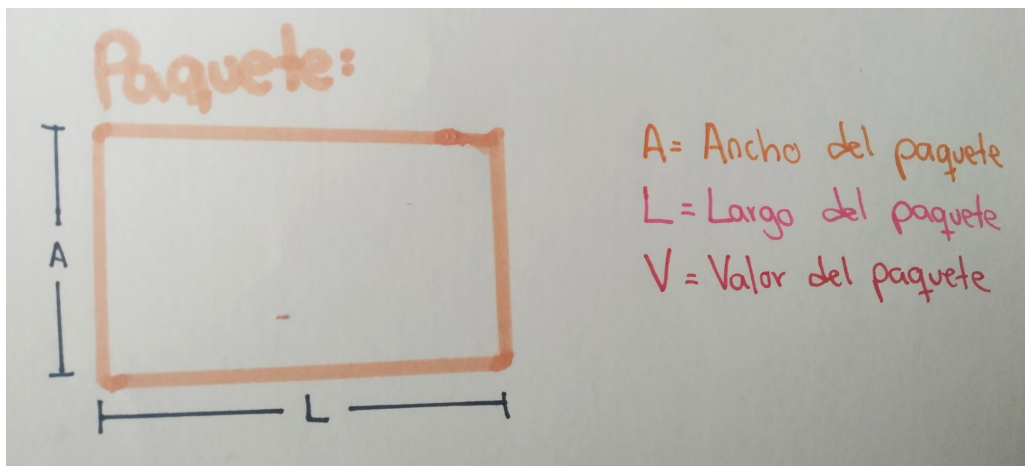 Paquete:
A= Ancho del paquete
L = Largo del paquete
V = Valor del paquete
A
L